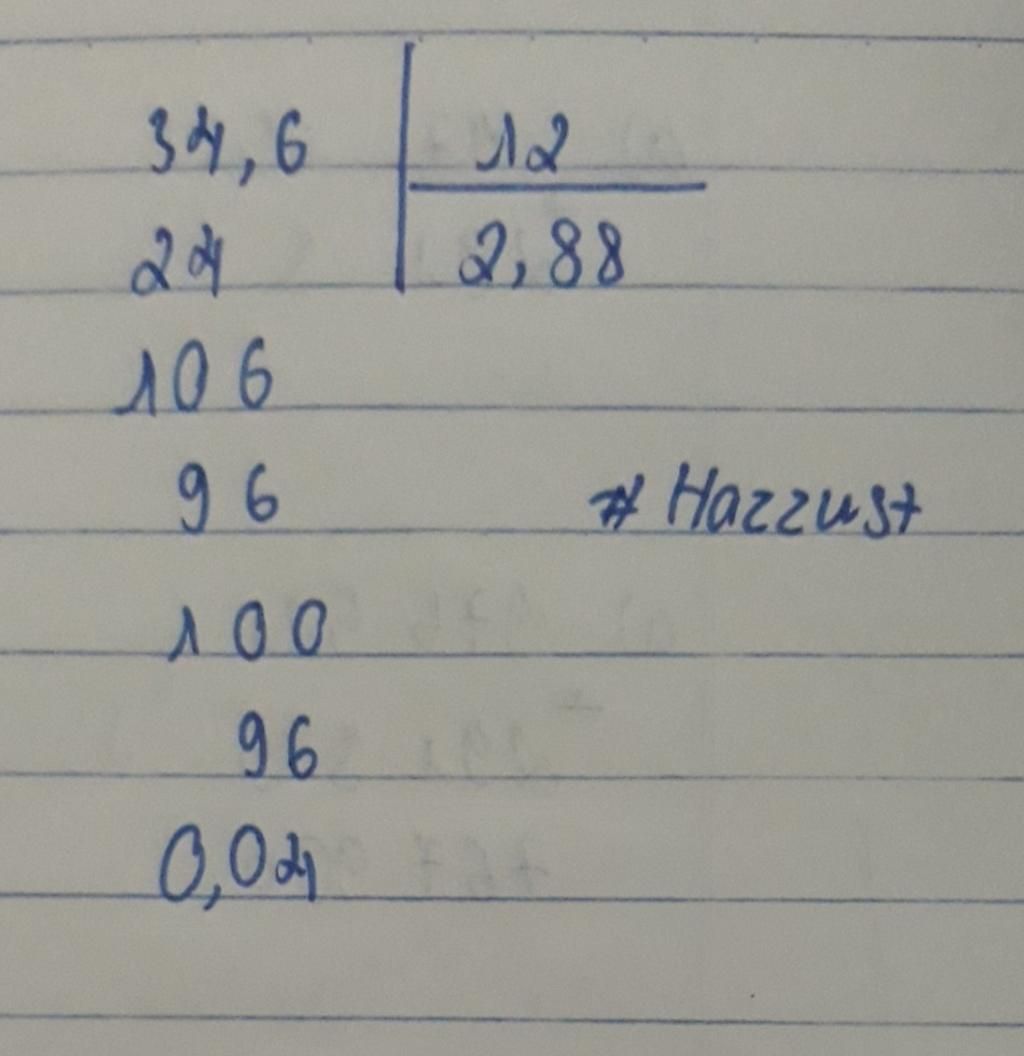 34,6 12
24 2,88
106
96 # Hazzust
100
96
0,04